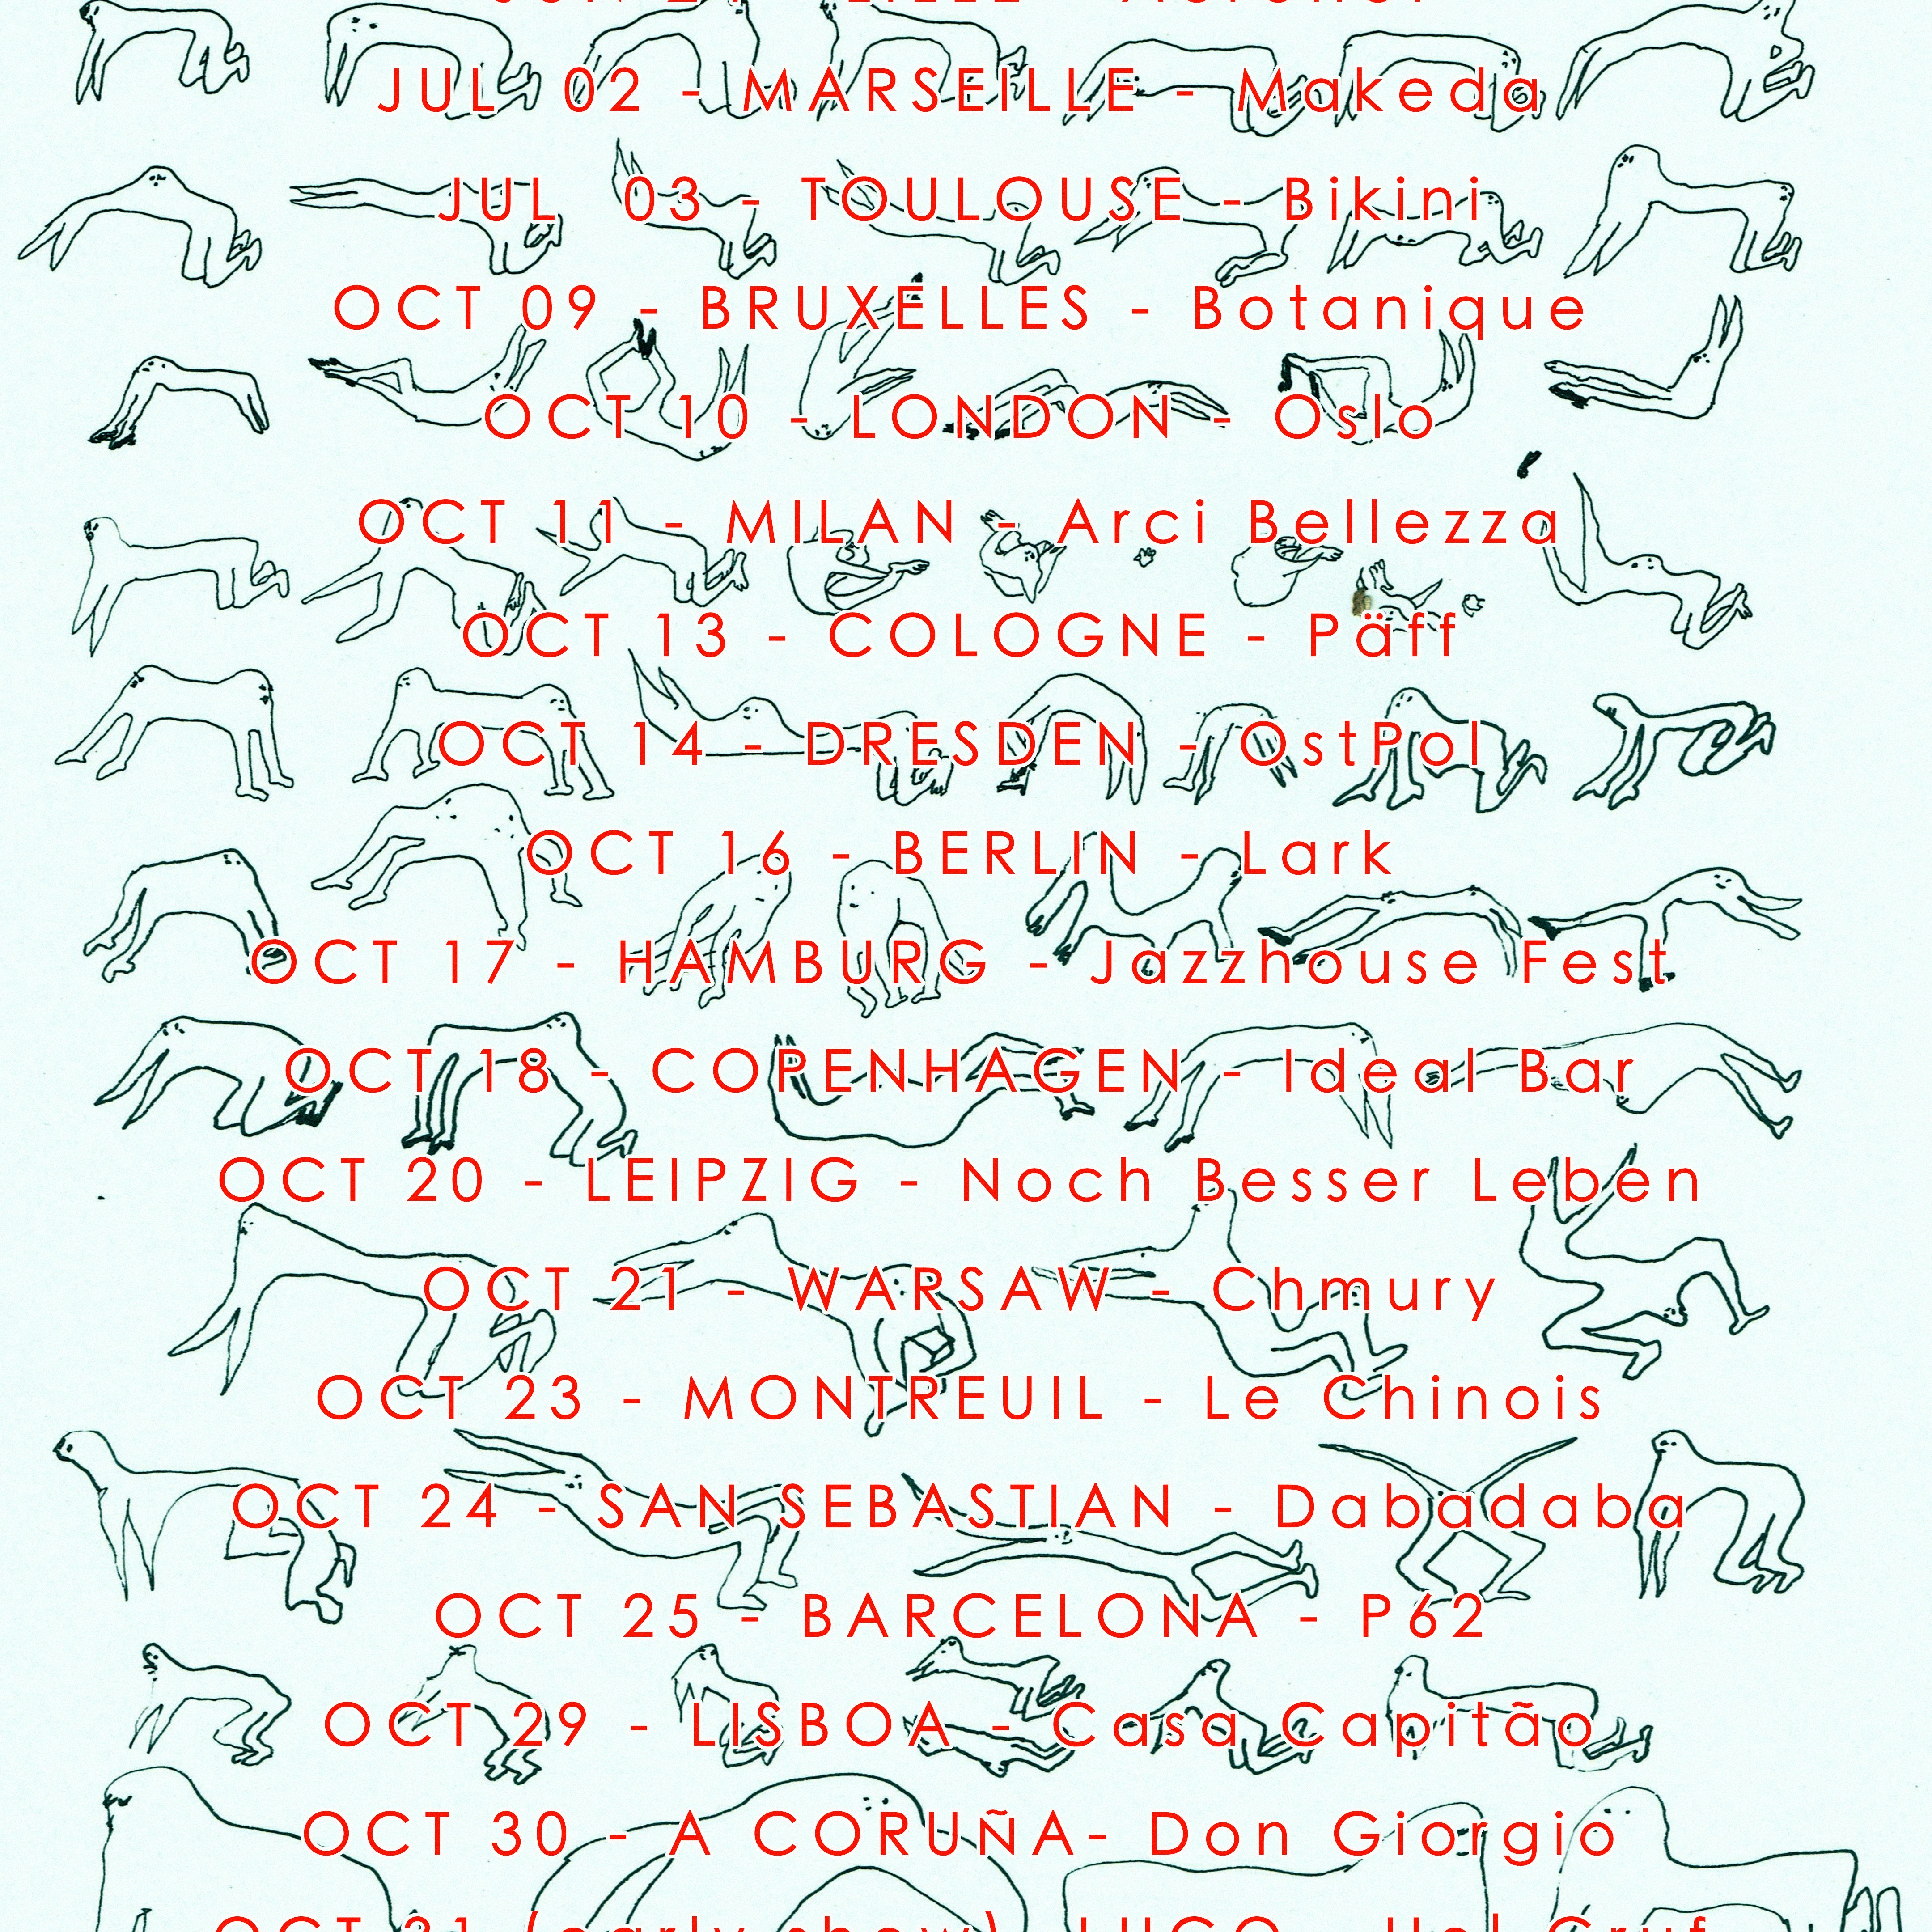 JUL 02 - MARSEILLE - Makeda
JUL 03 - TOULOUSE - Bikini
OCT 09 - BRUXELLES - Botanique
OCT 10 - LONDON - Oslo
OCT 11 - MILAN - Arci Bellezza
OCT 13 - COLOGNE - Päff
OCT 14 - DRESDEN - OstPol
OCT 16 - BERLIN - Lark
OCT 17 - HAMBURG - Jazzhouse Fest
OCT 18 - COPENHAGEN - Ideal Bar
OCT 20 - LEIPZIG - Noch Besser Leben
OCT 21 - WARSAW - Chmury
OCT 23 - MONTREUIL - Le Chinois
OCT 24 - SAN SEBASTIAN - Dabadaba
OCT 25 - BARCELONA - P62
OCT 29 - LISBOA - Casa Capitão
OCT 30 - A CORUÑA- Don Giorgio
OCT 31 (early show)